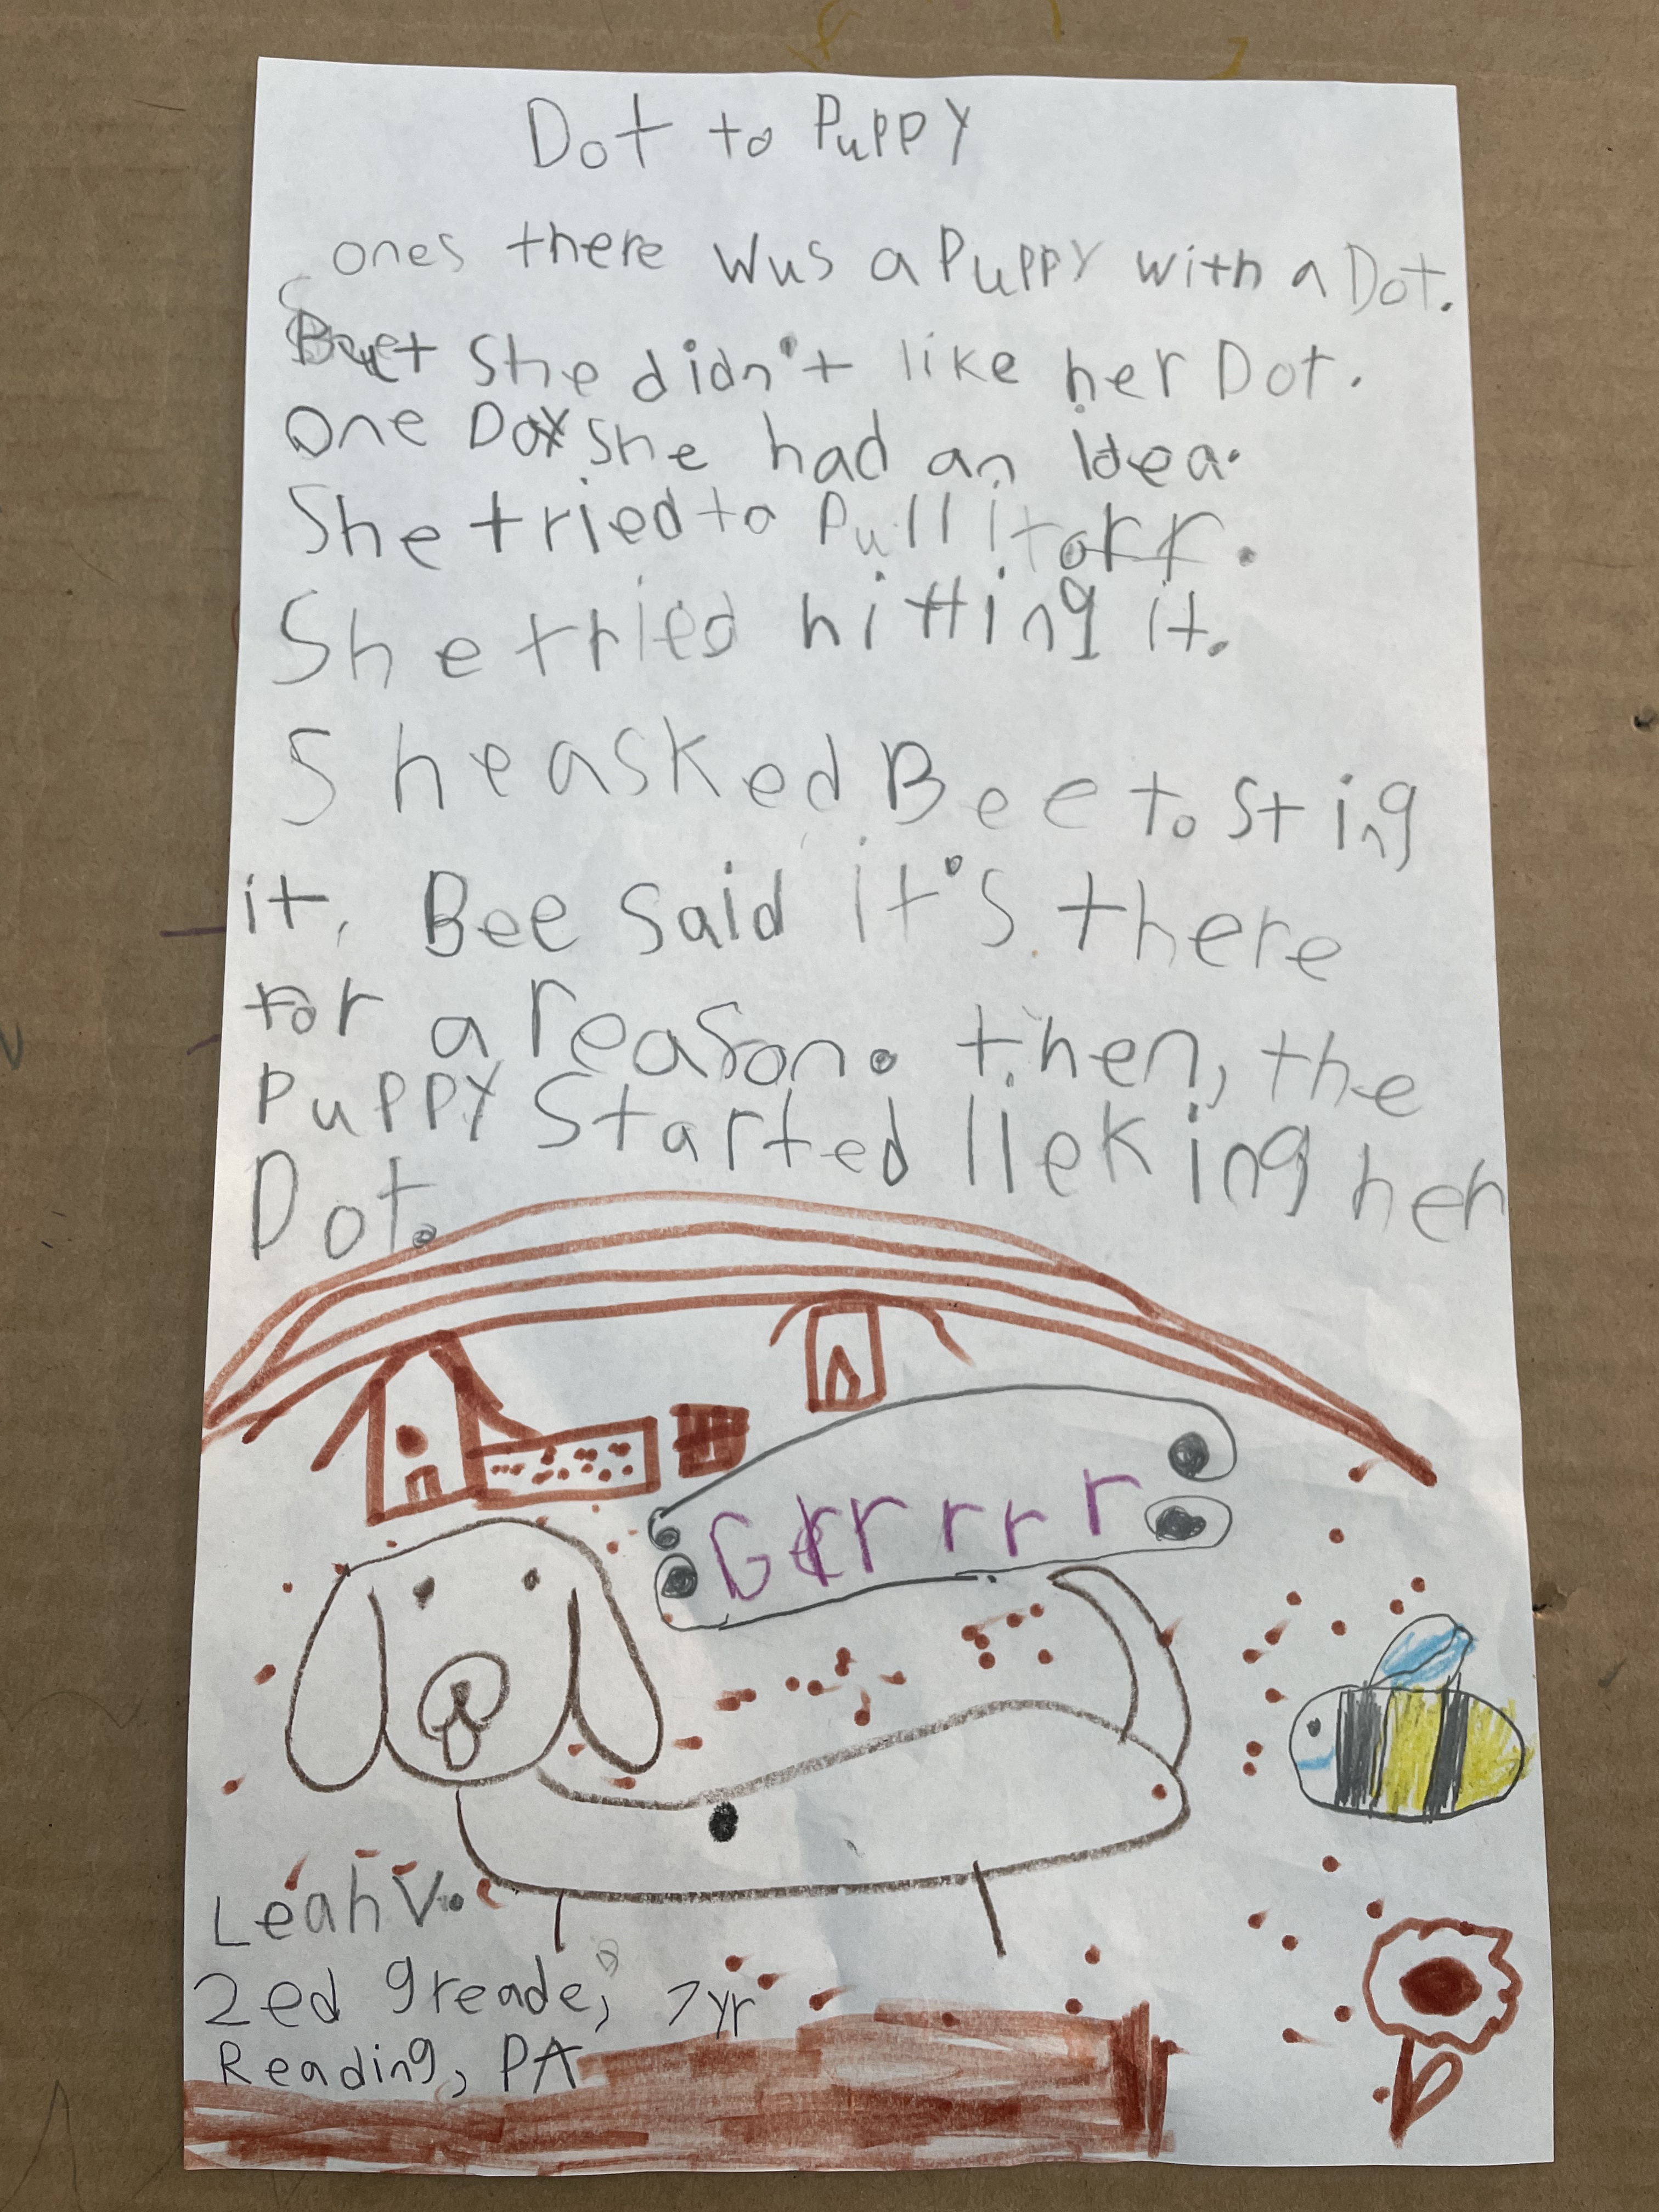 Dot to Puppy
ones there wus a Puppy with a Dot.
But She didn't like her Dot.
One Day She had an Idea.
She tried to Pull it off.
She tried hitting it.
She asked Bee to Sting
it, Bee Said it's there
for a reason. then, the
Puppy Started lieking her
Dot.
Grrrrrr
Leah V.
2ed greade, 7yr
Reading, PA